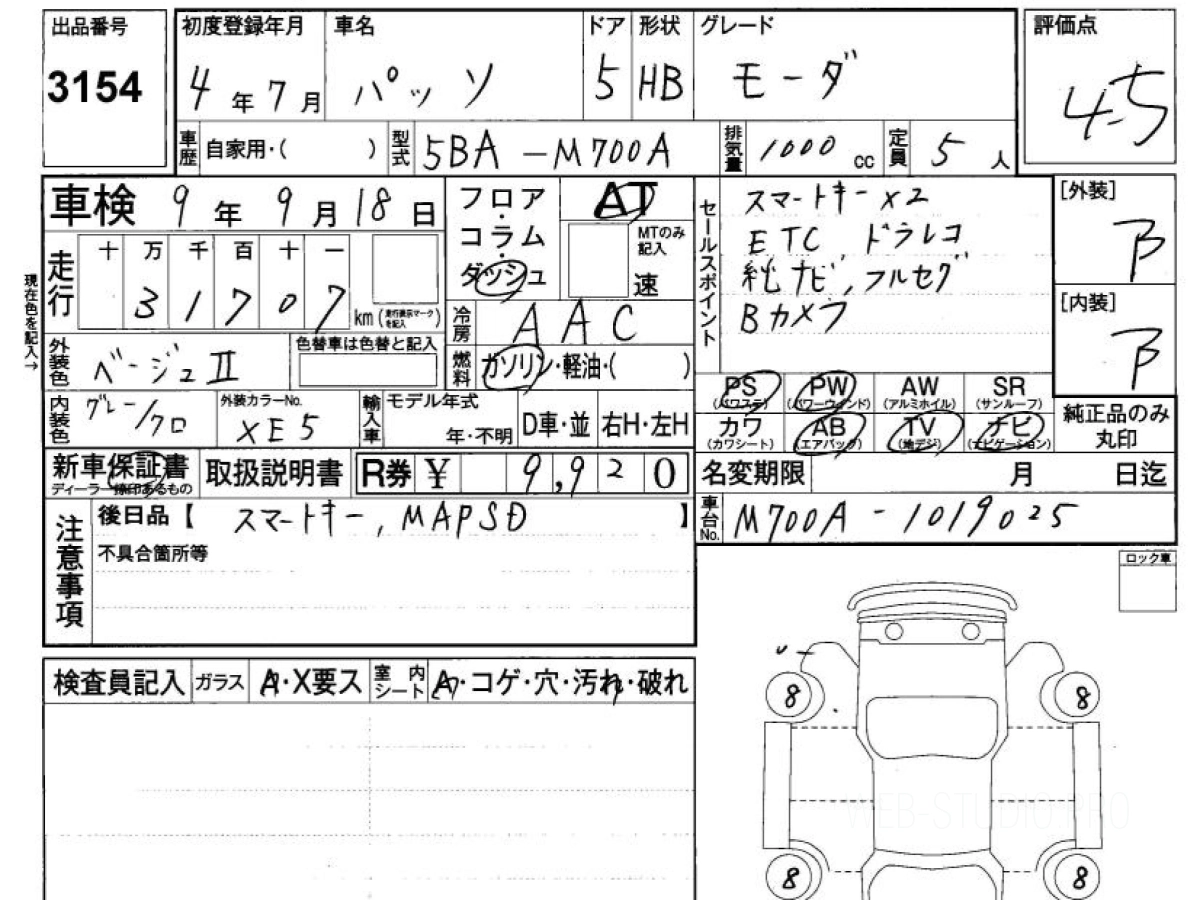 出品番号 初度登録年月 車名 ドア 形状 グレード 評価点
3154 4年7月 パッソ 5 HB モーダ 4.5
車歴 自家用・( ) 型式 5BA-M700A 排気量 1000 cc 定員 5人
車検 9年9月18日 フロア・コラム・ダッシュ AT MTのみ記入 速
セールスポイント スマートキー×2
ETC, ドラレコ
純ナビ, フルセグ
Bカメラ
[外装] B
[内装] B
現在色を記入→
走行 十 万 千 百 十 一
31707 km (走行表示マークを記入)
冷房 AAC
外装色 ベージュⅡ 色替車は色替と記入
燃料 ガソリン・軽油・( )
内装色 グレー/クロ 外装カラーNo. XE5 輸入車 モデル年式 年・不明 D車・並 右H・左H
PS (パワステ) PW (パワーウインド) AW (アルミホイル) SR (サンルーフ)
カワ (カワシート) AB (エアバック) TV (地デジ) ナビ (ナビゲーション)
純正品のみ丸印
新車保証書 ディーラー捺印あるもの 取扱説明書 R券 ¥ 9,920
名変期限 月 日迄
車台No. M700A-1019025
注意事項 後日品【 スマートキー, MAPSD 】
不具合箇所等
ロック車
検査員記入 ガラス A・X要ス 室内シート A・コゲ・穴・汚れ・破れ
8 8
WEB-STUDIO.PRO
8 8